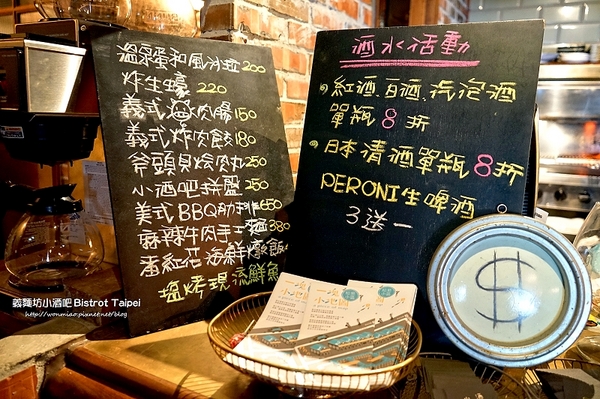 溫泉蛋和風沙拉 200
炸生蠔 220
義式 肉腸 150
義式炸肉餃 180
斧頭貝燴肉丸 250
小酒吧拼盤 250
美式BBQ肋排 650
麻辣牛肉手工麵 380
番紅花海鮮燉飯
塩烤現流鮮魚
酒水活動
紅酒、白酒、汽泡酒
單瓶 8 折
日本清酒單瓶 8折
PERONI生啤酒
3送一
$
義麵坊小酒吧 Bistrot Taipei
http://wonmiao.pixnet.net/blog